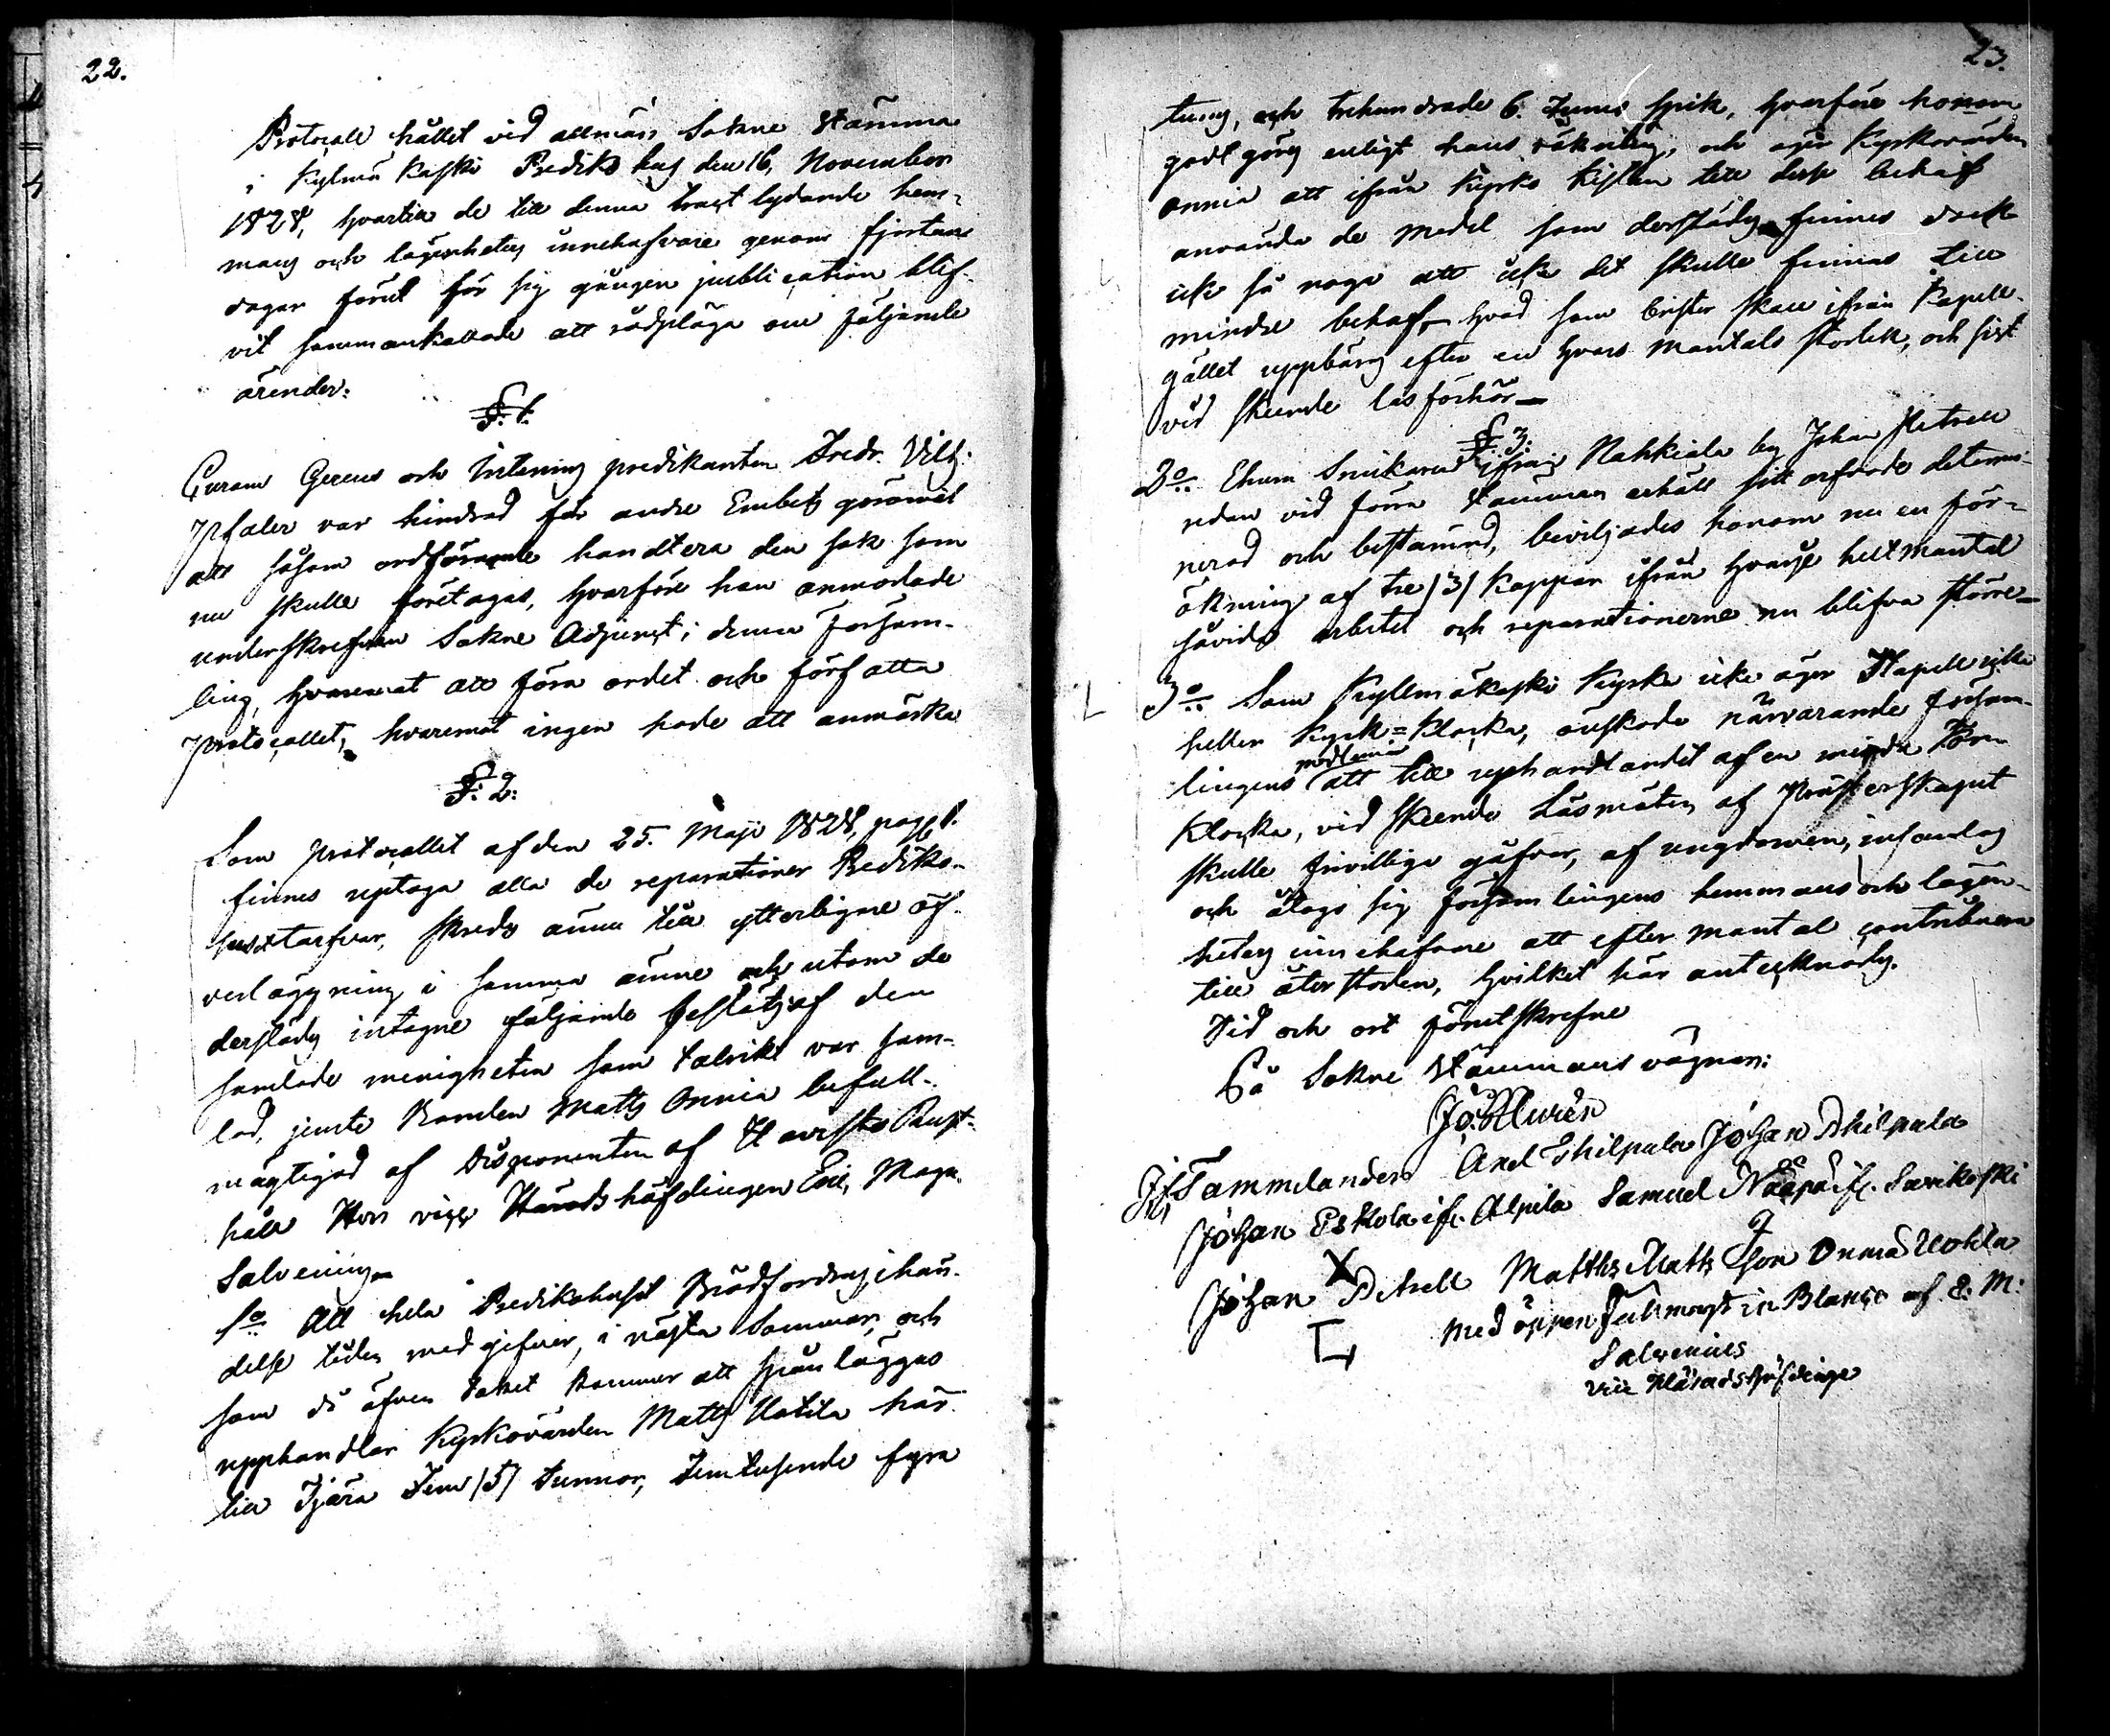 22.
Protocoll hållet vid allmän Sokne Stämma
i Kylmä Kaski Prediko hus den 16, November
1828, hvartill de till denna tragt lydande hem-
mans och lägenheters innehafvare genom fjortan
dagar förut för sig gången publication blif-
vit sammankallade att rådpläga om följande
ärender:
§. 1.
Curam Gerens och Intenings predikanten Fredr. Vilh.
Ipfaler var hindrad för andre Embets göromål
att såsom ordförande handtera den sak som
nu skulle företagas, hvarföre han anmodade
underskrefven Sokne Adjunct i denna försam-
ling, hvaremot att föra ordet och författa
protocollet, hvaremot ingen hade att anmärka
§. 2:
Som protocollet af den 25. Maji 1828, pagg. 1.
finnes uptaga alla de reparationer Prediko-
huset tarfvar, skreds ännu till ytterligare öf-
verläggning i samma ämne och utom de
derstädes intagne följande besluts af den
samlade menigheten som talrikt var sam-
lad, jemte Bonden Matts Onnia befull-
mägtigad af Disponenten af Havisto Rust-
håll Herr vice Häradshöfdingen Eric, Magn.
Salvenius
1o Att hela Predikohuset Brädfordras i hän-
delse tiden medgifver, i nästa Sommar, och
som då äfven taket kommer att tjärläggas
upphandlar Kyrkovärden Matts Uotila här-
till Tjära Fem /5/ tunnor, Femtusende fyra
23.
tung, och trehundrade 6. tums spik, hvarföre honom
godt görs enligt hans räkning, och äger Kyrkovärden
Onnia att ifrån Kyrko Kistan till dess behof
använda de medel som derstädes finnes dock
icke så noga att icke det skulle finnas till
mindre behof, hvad som brister skall ifrån Kapell-
gället uppbäras efter en hvars mantals storlek, och sist
vid skeende läsförhör
§. 3.
2o Ehuru Snickaren ifrån Nahkiala by Johan Petrell
redan vid förra Stämman erhållt sitt arfvode determi-
nerad och bestämd, beviljades honom nu en för-
ökning af tre /3/ Kappar ifrån hvarje helt mantal
såvida arbetet och reparationerne nu blifva större
3o Som Kyllmäkoski Kyrka icke äger Kapell eller
heller Kyrk=Klocka, önskade närvarande försam-
lingens medlemmar att till upphandlandet af en mindre Torn
Klocka, vid skeende Läsmöten, af Prästerskapet
skulle frivillige gåfvor, af ungdomen, insamlas
och åtogs sig församlingens hemmans och lägen-
heters innehafvare att efter mantal contribuera
till återstoden, hvilket här antecknades.
Tid och ort förutskrefne
På Sokne Stämmans vägnar:
Jo: Hurén
Jf Tammelander Axel Thilpala Johan Thilpala
Johan Eskola ifr. Alpila Samuel Näppä ifr. Savikoski
Johan Petrell Matths Matts Son Onnia Uotila
Med öppen fullmagt in Blanco af E. M:
Salvenius
vice Häradshöfdinge